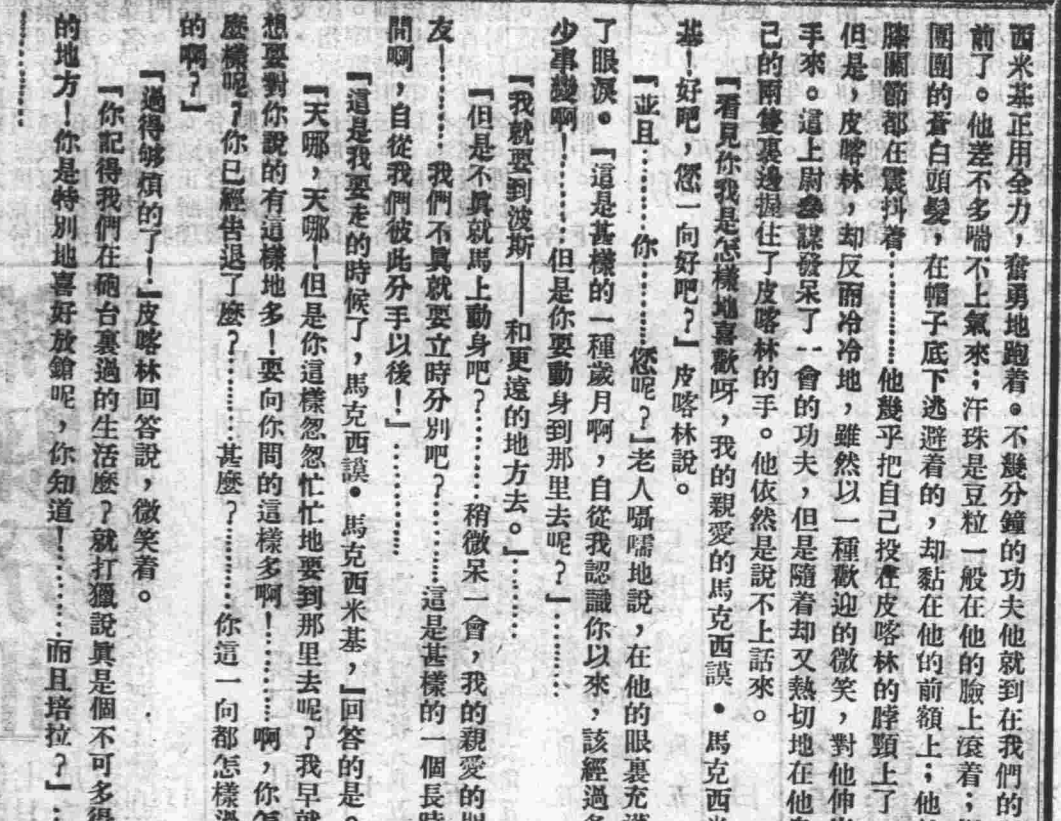 西米基正用全力，奮勇地跑着。不幾分鐘的功夫他就到在我們的
前了。他差不多喘不上氣來；汗珠是豆粒一般在他的臉上滾着；
團團的蒼白頭髮，在帽子底下逃避着的，却黏在他的前額上；他
膝關節都在震抖着…………他幾乎把自己投在皮喀林的脖頸上了
但是，皮喀林，却反而冷冷地，雖然以一種歡迎的微笑，對他伸出
手來。這上尉參謀發呆了一會的功夫，但是隨着却又熱切地在他自
己的兩隻裏邊握住了皮喀林的手。他依然是說不上話來。
『看見你我是怎樣地喜歡呀，我的親愛的馬克西謨•馬克西米
基！好吧，您一向好吧？』皮喀林說。
『並且………你…………您呢？』老人囁嚅地說，在他的眼裏充滿
了眼淚。『這是甚樣的一種歲月啊，自從我認識你以來，該經過多
少事變啊！………但是你要動身到那里去呢？』…………
『我就要到波斯——和更遠的地方去。』………
『但是不眞就馬上動身吧？…………稍微呆一會，我的親愛的朋
友！………我們不眞就要立時分別吧？…………這是甚樣的一個長時
間啊，自從我們彼此分手以後！』…………
『這是我要走的時候了，馬克西謨•馬克西米基，』回答的是。
『天哪，天哪！但是你這樣忽忽忙忙地要到那里去呢？我早就
想要對你說的有這樣地多！要向你問的這樣多啊！…………啊，你怎
麼樣呢？你已經告退了麼？…………甚麼？…………你這一向都怎樣過
的啊？』
『過得够煩的了！』皮喀林回答說，微笑着。
『你記得我們在砲台裏過的生活麼？就打獵說眞是個不可多得
的地方！你是特別地喜好放鎗呢，你知道！…………而且培拉？』…
…………